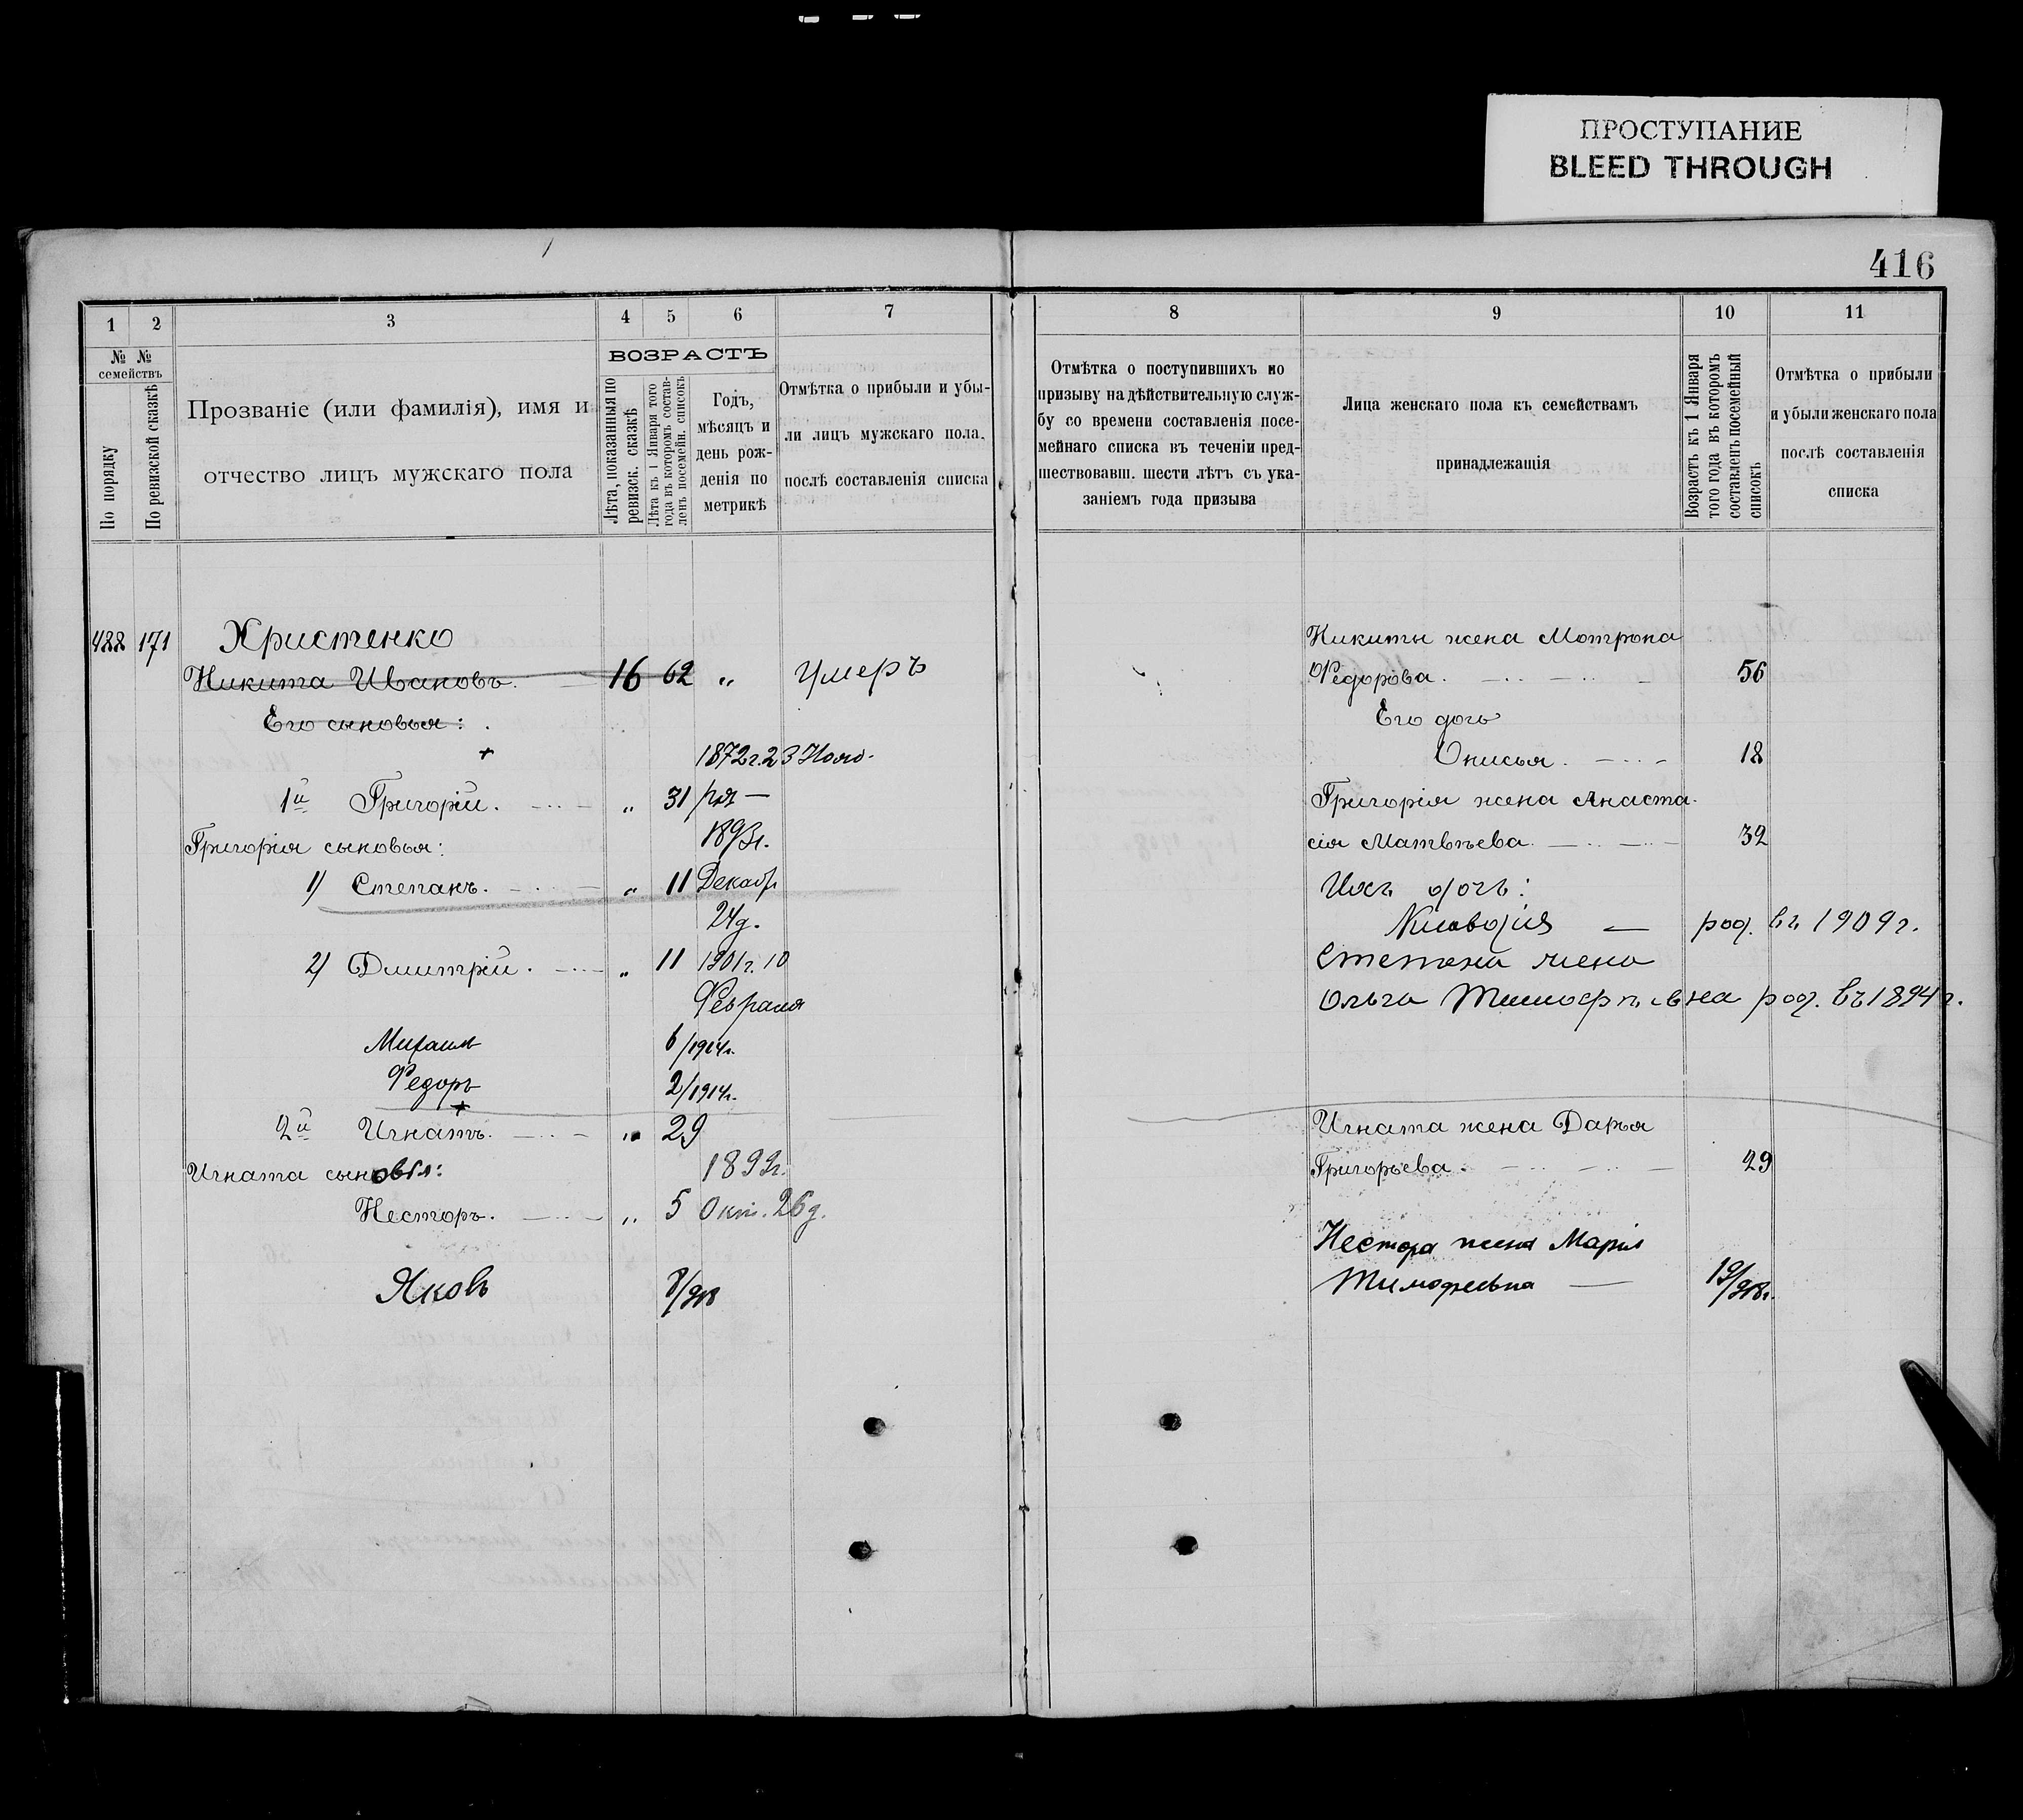 ПРОСТУПАНИЕ
BLEED THROUGH
416
1 2 3 4 5 6 7
№ № семействъ
По порядку
По ревизской сказкѣ
Прозваніе (или фамилія), имя и
отчество лицъ мужскаго пола
ВОЗРАСТЪ
Лѣта, показанныя по
ревизск. сказкѣ
Лѣта къ 1 Января того
года въ которомъ состав-
ленъ посемейн. списокъ
Годъ,
мѣсяцъ и
день рож-
денія по
метрикѣ
Отмѣтка о прибыли и убы-
ли лицъ мужскаго пола,
послѣ составленія списка
488 171 Христенко
Никита Ивановъ. 16 62 „ Умеръ
Его сыновья:
+ 1872г. 23 Нояб-
1й Григорій. „ 31 ря —
Григорія сыновья: 1893г.
1) Степанъ. „ 11 Декабр
24д.
2) Дмитрій. „ 11 1901г. 10
Февраля
Михаилъ 6/1914г.
Федоръ 2/1914г.
+
2й Игнатъ. „ 29
Игната сыновья: 1899г.
Несторъ. „ 5 Окт. 26д.
Яковъ
8 9 10 11
Отмѣтка о поступившихъ по
призыву на дѣйствительную служ-
бу со времени составленія посе-
мейнаго списка въ теченіи пред-
шествовавш. шести лѣтъ съ ука-
заніемъ года призыва
Лица женскаго пола къ семействамъ
принадлежащія
Возрастъ къ 1 Января
того года въ которомъ
составленъ посемейный
списокъ
Отмѣтка о прибыли
и убыли женскаго пола
послѣ составленія
списка
Никиты жена Мотрона
Федорова. 56
Его дочь
Онисья. 18
Григорія жена Анаста-
сія Матвѣева. 32
Ихъ дочь:
— род. въ 1909г.
Степана жена
Ольга Тимофѣевна род. въ 1894г.
Игната жена Дарья
Григорьева. 29
Нестора жена Марія
Тимофеевна — 19/918г.